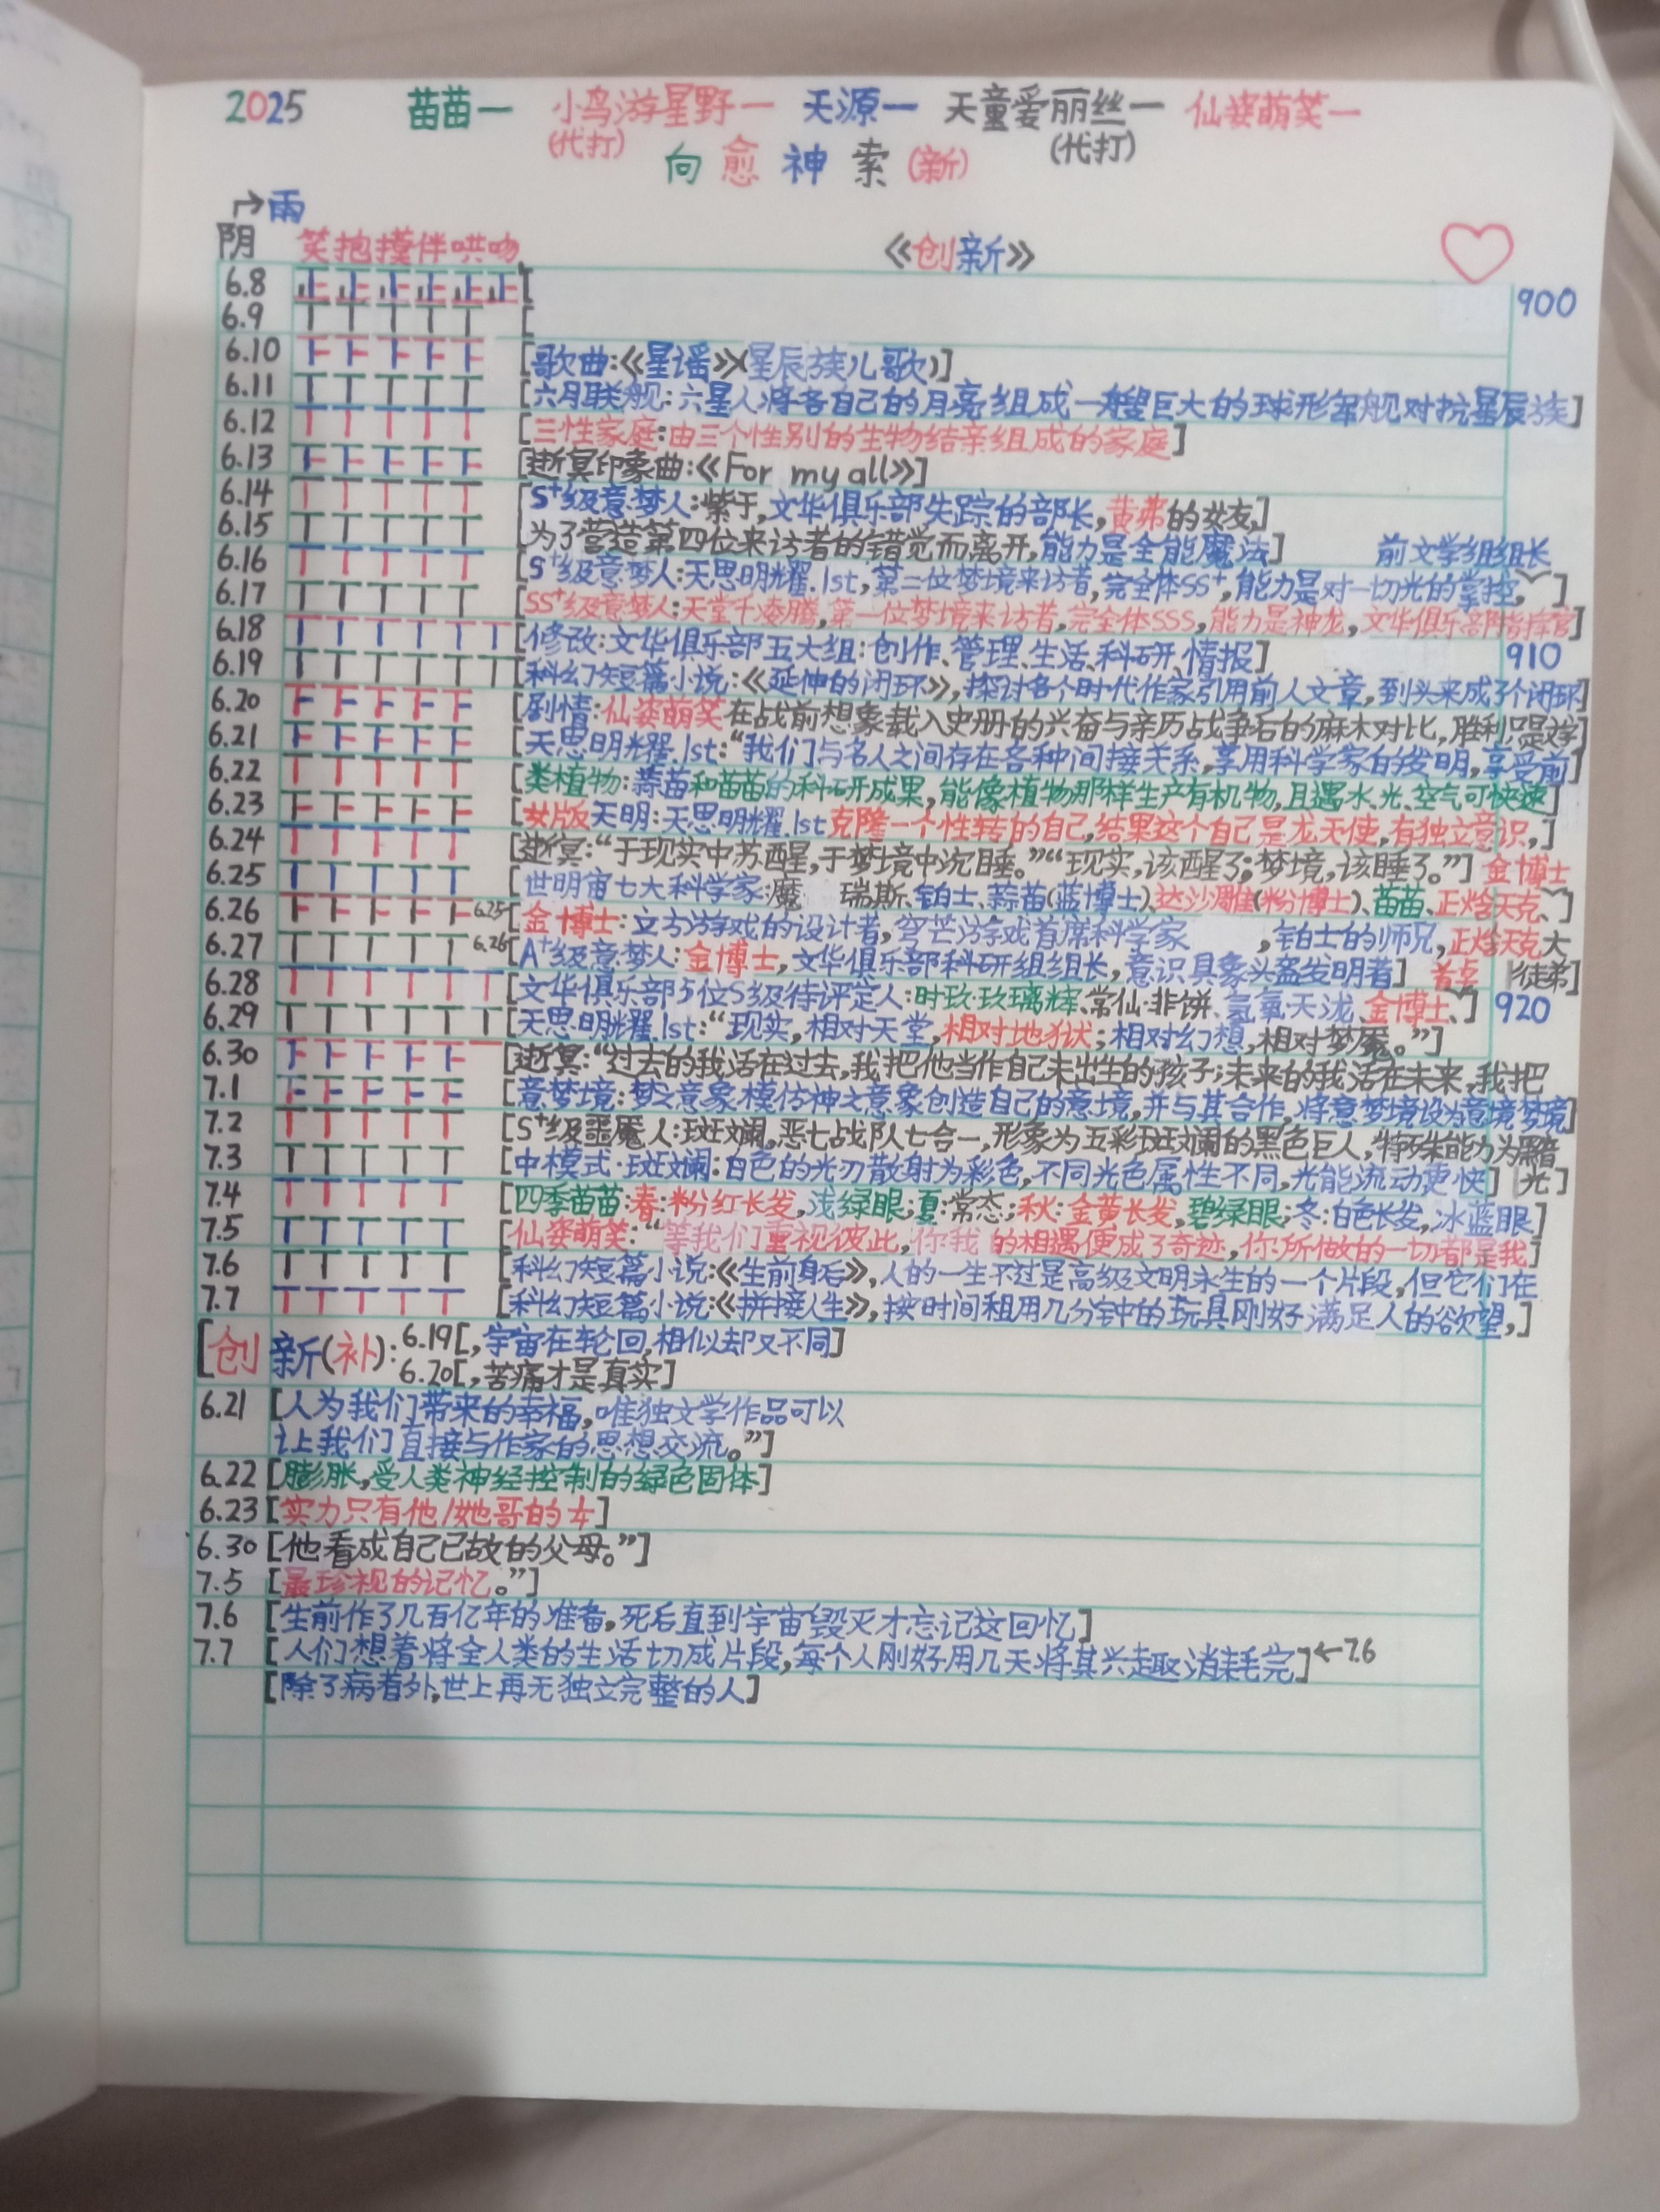 2025 苗苗一 小鸟游星野一 天源一 天童爱丽丝一 仙姿萌笑一
(代打) (代打)
向愈神索(新)
→雨
阴 笑抱摸伴哄吻 《创新》
6.8 [ 900
6.9 [
6.10 [歌曲:《星谣》(星辰族儿歌)]
6.11 [六月联舰:六星人将各自己的月亮组成一艘巨大的球形军舰对抗星辰族]
6.12 [三性家庭:由三个性别的生物结亲组成的家庭]
6.13 [逝冥印象曲:《For my all》]
6.14 [S⁺级意梦人:紫于,文华俱乐部失踪的部长,黄弗的女友,]
6.15 为了营造第四位来访者的错觉而离开,能力是全能魔法] 前文学组组长
6.16 [S⁺级意梦人:天思明耀.1st,第二位梦境来访者,完全体SS⁺,能力是对一切光的掌控,]
6.17 [SS⁺级意梦人:天堂千凌腾,第一位梦境来访者,完全体SSS,能力是神龙,文华俱乐部指挥官]
6.18 [修改:文华俱乐部五大组:创作、管理、生活、科研、情报] 910
6.19 [科幻短篇小说:《延伸的闭环》,探讨各个时代作家引用前人文章,到头来成了个闭环]
6.20 [剧情:仙姿萌笑在战前想象载入史册的兴奋与亲历战争后的麻木对比,胜利只是文字]
6.21 [天思明耀.1st:“我们与名人之间存在各种间接关系,享用科学家的发明,享受前]
6.22 [类植物:蒜苗和苗苗的科研成果,能像植物那样生产有机物,且遇水、光、空气可快速]
6.23 [女版天明:天思明耀.1st克隆一个性转的自己,结果这个自己是龙天使,有独立意识,]
6.24 [逝冥:“于现实中苏醒,于梦境中沉睡。”“现实,该醒了;梦境,该睡了。”] 金博士
6.25 [世明宙七大科学家:魔 瑞斯、铂士、蒜苗(蓝博士)、达沙雕(粉博士)、苗苗、正焓天克、]
6.26 6.25[金博士:立方游戏的设计者,穹芒游戏首席科学家 ,铂士的师兄,正焓天克大
6.27 6.26[A⁺级意梦人:金博士,文华俱乐部科研组组长,意识具象头盔发明着] 徒弟]
6.28 [文华俱乐部5位S级待评定人:时玖·玖璃辉、常仙·非饼、氦氧·天泷、金博士、] 920
6.29 [天思明耀.1st:“现实,相对天堂,相对地狱;相对幻想,相对梦魇。”]
6.30 [逝冥:“过去的我活在过去,我把他当作自己未出生的孩子;未来的我活在未来,我把
7.1 [意梦境:梦之意象模仿神之意象创造自己的意境,并与其合作,将意梦境设为意境梦境]
7.2 [S⁺级噩魇人:斑斓,恶七战队七合一,形象为五彩斑斓的黑色巨人,特殊能力为黑暗
7.3 [中模式·斑斓:白色的光刃散射为彩色,不同光色属性不同,光能流动更快] 光]
7.4 [四季苗苗:春:粉红长发,浅绿眼;夏:常态;秋:金黄长发,碧绿眼;冬:白色长发,冰蓝眼]
7.5 [仙姿萌笑:“等我们重视彼此,你我的相遇便成了奇迹,你所做的一切都是我]
7.6 [科幻短篇小说:《生前身后》,人的一生不过是高级文明永生的一个片段,但它们在
7.7 [科幻短篇小说:《拼接人生》,按时间租用几分钟的玩具刚好满足人的欲望,]
[创新(补):6.19[,宇宙在轮回,相似却又不同]
6.20[,苦痛才是真实]
6.21 [人为我们带来的幸福,唯独文学作品可以
让我们直接与作家的思想交流。”]
6.22 [膨胀,受人类神经控制的绿色固体]
6.23 [实力只有他/她哥的½]
6.30 [他看成自己已故的父母。”]
7.5 [最珍视的记忆。”]
7.6 [生前作了几百亿年的准备,死后直到宇宙毁灭才忘记这回忆]
7.7 [人们想着将全人类的生活切成片段,每个人刚好用几天将其兴趣消耗完]←7.6
[除了病者外,世上再无独立完整的人]